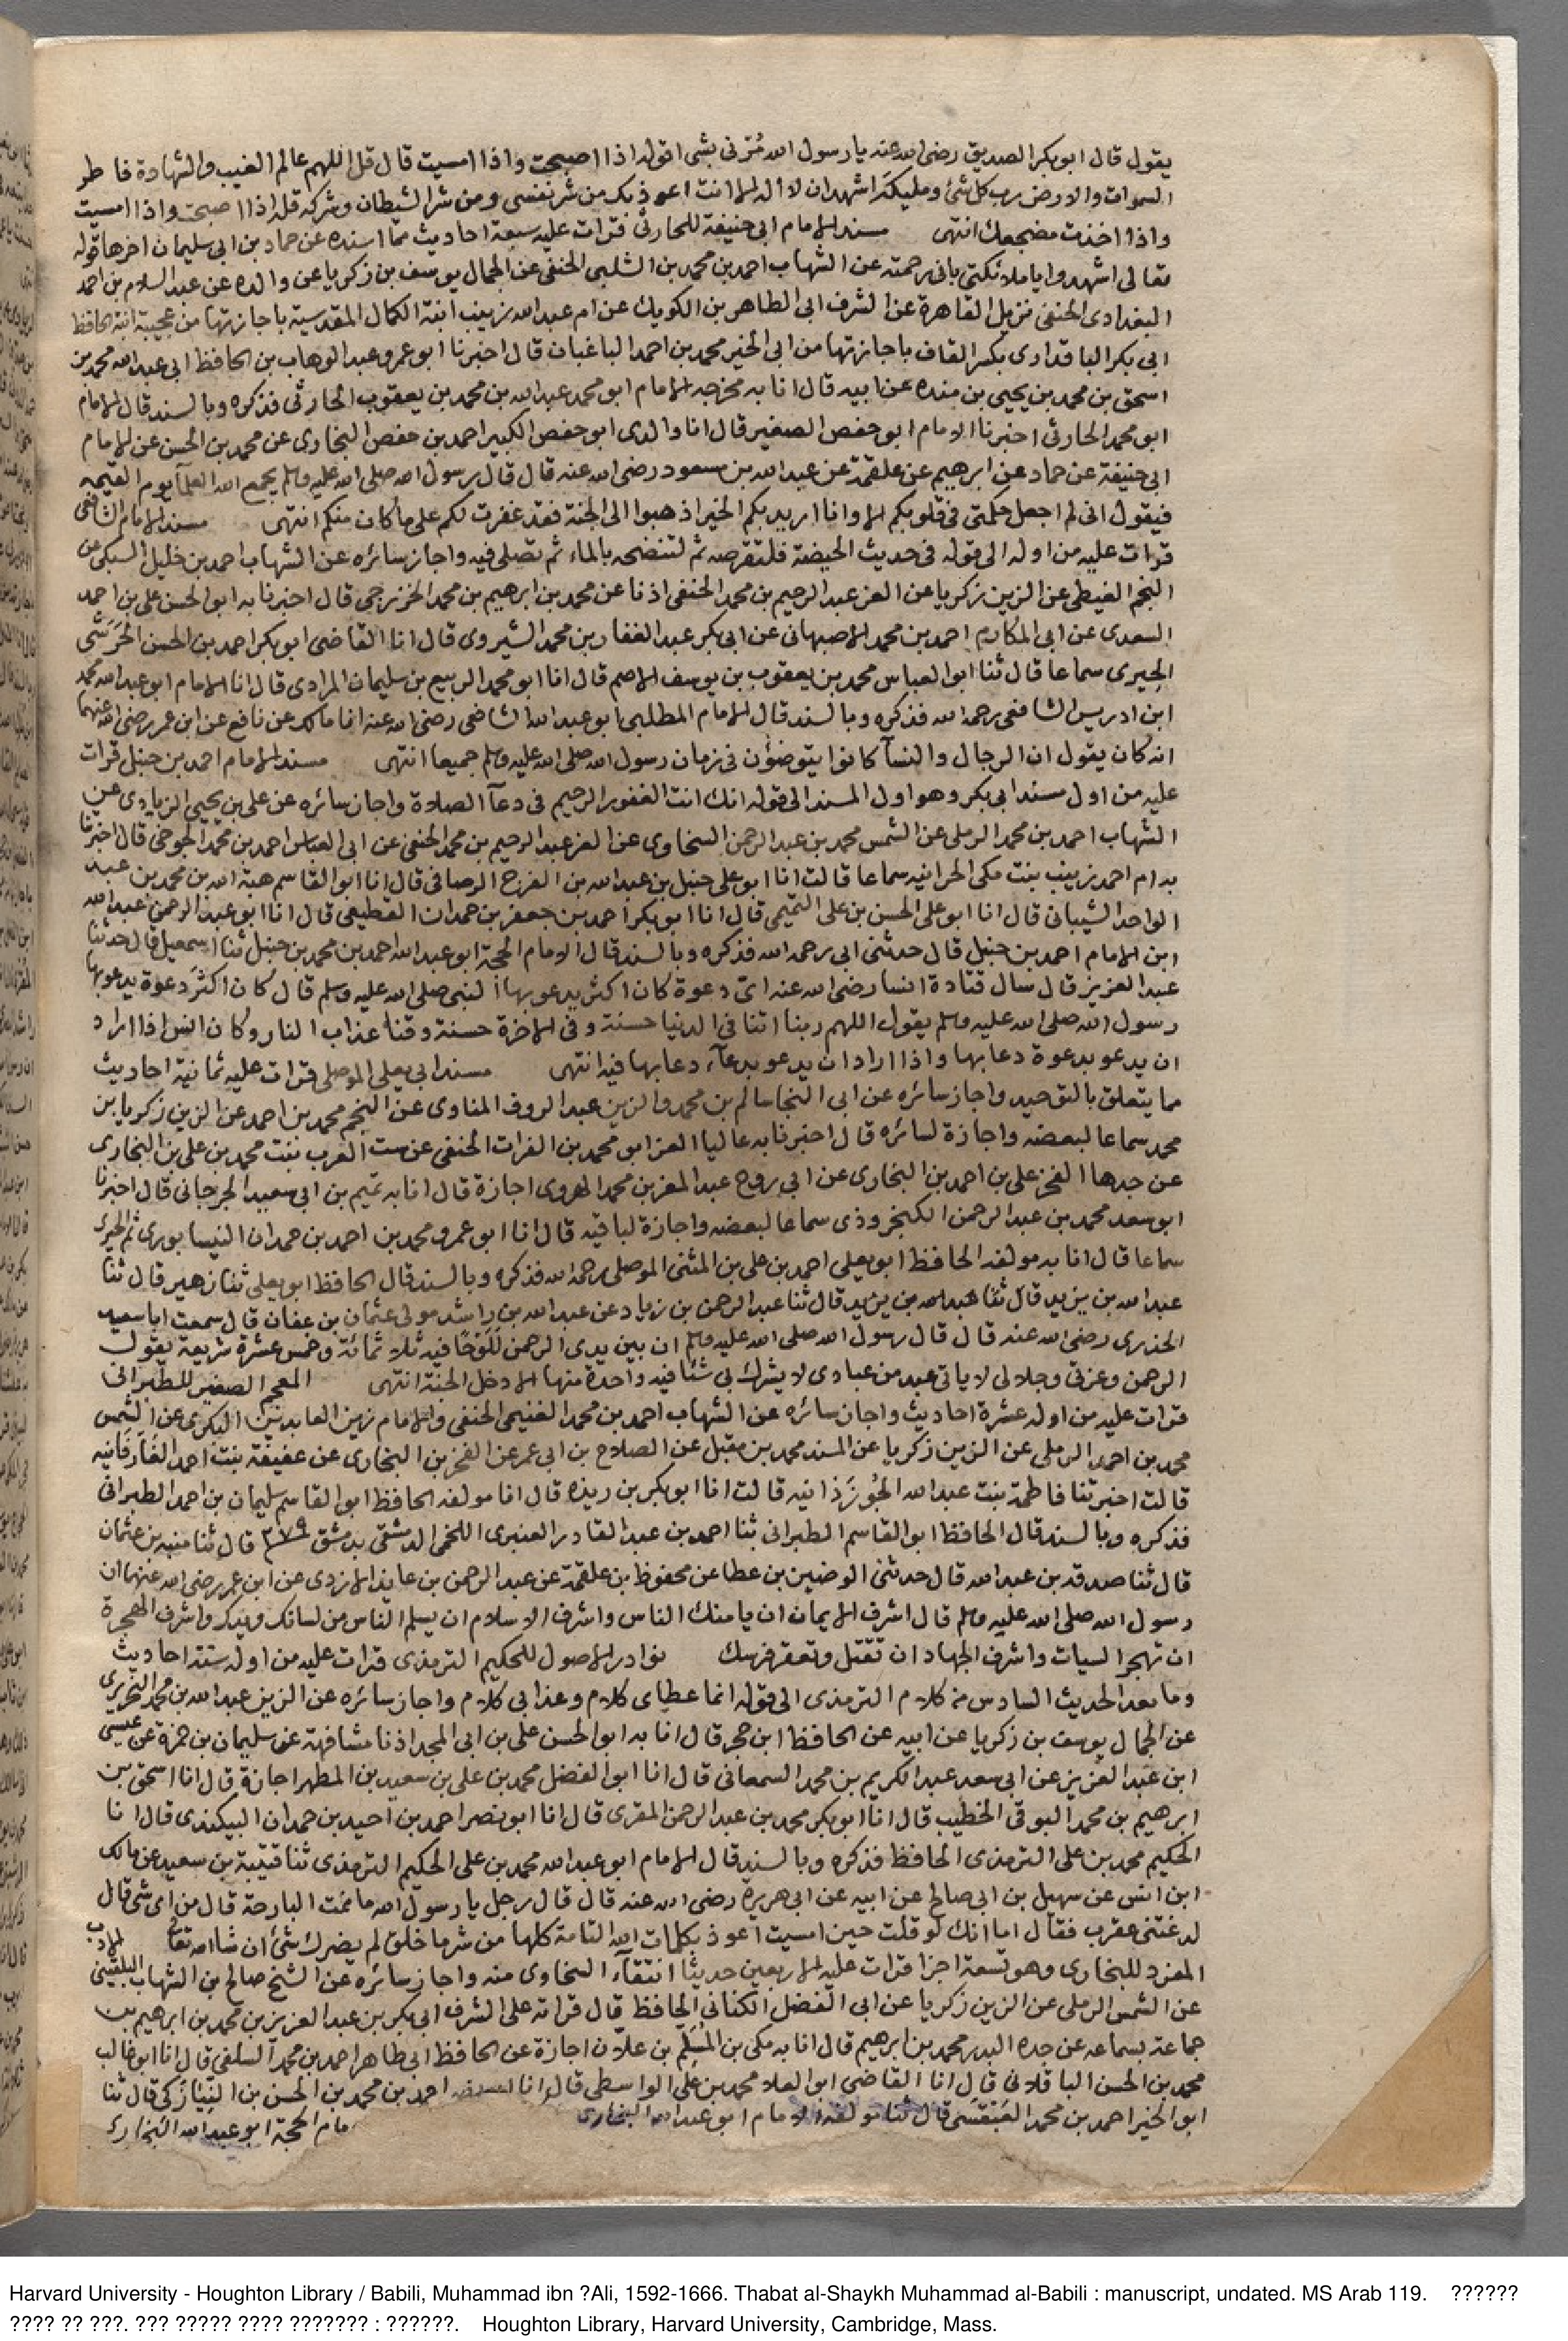 يقول قال ابو بكر الصديق رضى الله عنه يا رسول الله مُرْنى بشى اقوله اذا اصبحت واذا امسيت قال قل اللهم عالم الغيب والشهادة فاطر
السموات والارض رب كل شئ ومليكه اشهد ان لا اله الا انت اعوذ بك من شر نفسى ومن شر الشطان وشركه قله اذا اصبحت واذا امسيت
واذا اخذت مضجعك انتهى مسند الامام ابى حنيفة للحارثى قرات عليه سبعة احاديث مما اسنده عن حماد بن ابى سليمان اخرها قوله
تعالى اشهدوا يا ملائكتى بانى رحمته عن الشهاب احمد بن محمد بن الشلبى الحنفى عن الجمال يوسف بن زكريا عن والده عن عبد السلام بن احمد
البغدادى الحنفى نزيل القاهرة عن الشرف ابى الطاهر بن الكويك عن ام عبد الله زينب ابنة الكمال المقدسية باجازتها من عجيبة ابنة الحافظ
ابى بكر الباقدارى بكسر القاف باجازتها من ابى الخير محمد بن احمد الباغبان قال اخبرنا ابو عمرو عبد الوهاب بن الحافظ ابى عبد الله محمد بن
اسحق بن محمد بن يحيى بن منده عن ابيه قال انا به مخرجه الامام ابو محمد عبد الله بن محمد بن يعقوب الحارثى فذكره وبالسند قال الامام
ابو محمد الحارثى اخبرنا الامام ابو حفص الصغير قال انا والدى ابو حفص الكبير احمد بن حفص البخارى عن محمد بن الحسن عن الامام
ابى حنيفة عن حماد عن ابرهيم عن علقمة عن عبد الله بن مسعود رضى الله عنه قال قال رسول الله صلى الله عليه وسلم يجمع الله العلمآ يوم القيمة
فيقول انى لم اجعل حكمتى فى قلوبكم الا وانا اريد بكم الخير اذهبوا الى الجنة فقد غفرت لكم على ما كان منكم انتهى مسند الامام الشافعى
قرات عليه من اوله الى قوله فى حديث الحيضة فلتقرصه ثم لتنضحه بالماء ثم تصلى فيه واجاز سائره عن الشهاب احمد بن خليل السبكى عن
النجم الغيطى عن الزين زكريا عن العز عبد الرحيم بن محمد الحنفى اذنا عن محمد بن ابرهيم بن محمد الخزرجى قال اخبرنا به ابو الحسن على بن احمد
السعدى عن ابى المكارم احمد بن محمد الاصبهانى عن ابى بكر عبد الغفار بن محمد الشيروى قال انا القاضى ابو بكر احمد بن الحسن الحَرَشى
الحِيرى سماعا قال ثنا ابو العباس محمد بن يعقوب بن يوسف الاصم قال انا ابو محمد الربيع بن سليمان المرادى قال انا الامام ابو عبد الله محمد
ابن ادريس الشافعى رحمه الله فذكره وبالسند قال الامام المطلبى ابو عبد الله الشافعى رضى الله عنه انا مالك عن نافع عن ابن عمر رضى الله عنهما
انه كان يقول ان الرجال والنسآ كانوا يتوضؤن فى زمان رسول الله صلى الله عليه وسلم جميعا انتهى مسند الامام احمد بن حنبل قرات
عليه من اول مسند ابى بكر وهو اول المسند الى قوله انك انت الغفور الرحيم فى دعآ الصلاة واجاز سائره عن على بن يحيى الزيادى عن
الشهاب احمد بن محمد الرملى عن الشمس محمد بن عبد الرحمن السخاوى عن العز عبد الرحيم بن محمد الحنفى عن ابى العباس احمد بن محمد الجوخى قال اخبرتنا
به ام احمد زينب بنت مكى الحرانيه سماعا قالت انا ابو على حنبل بن عبد الله بن الفرج الرصافى قال انا ابو القاسم هبة الله بن محمد بن عبد
الواحد الشيبانى قال انا ابو على الحسن بن على التميمى قال انا ابو بكر احمد بن جعفر بن حمدان القطيعى قال انا ابو عبد الرحمن عبد الله
ابن الامام احمد بن حنبل قال حدثنى ابى رحمه الله فذكره وبالسند قال الامام الحجة ابو عبد الله احمد بن محمد بن حنبل ثنا اسمعيل قال حدثنا
عبد العزيز قال سال قتادة انسا رضى الله عنه اىّ دعوة كان اكثر يدعو بها النبى صلى الله عليه وسلم قال كان اكثر دعوة يدعو بها
رسول الله صلى الله عليه وسلم يقول اللهم ربنا اتنا فى الدنيا حسنة وفى الاخرة حسنة وقنا عذاب النار وكان انس اذا اراد
ان يدعو بدعوة دعا بها واذا اراد ان يدعو بدعآء دعا بها فيه انتهى مسند ابى يعلى الموصلى قرات عليه ثمانية احاديث
مما يتعلق بالتوحيد واجاز سائره عن ابى النجا سالم بن محمد والزين عبد الروف المناوى عن النجم محمد بن احمد عن الزين زكريا بن
محمد سماعا لبعضه واجازة لسائره قال اخبرنا به عاليا العز ابو محمد بن الفرات الحنفى عن ست العرب بنت محمد بن على بن البخارى
عن جدها الفخر على بن احمد بن البخارى عن ابى روح عبد المعز بن محمد الهروى اجازة قال انا به تميم بن ابى سعيد الجرجانى قال اخبرنا
ابو سعد محمد بن عبد الرحمن الكنجروذى سماعا لبعضه واجازة لباقيه قال انا ابو عمرو محمد بن احمد بن حمدان النيسابورى ثم الحيرى
سماعا قال انا به مولفه الحافظ ابو يعلى احمد بن على بن المثنى الموصلى رحمه الله فذكره وبالسند قال الحافظ ابو يعلى ثنا زهير قال ثنا
عبد الله بن يزيد قال ثنا عبد الله بن يزيد قال ثنا عبد الرحمن بن زياد عن عبد الله بن راشد مولى عثمان بن عفان قال سمعت ابا سعيد
الخدرى رضى الله عنه قال قال رسول الله صلى الله عليه وسلم ان بين يدى الرحمن لَلَوْحًا فيه ثلاثمائة وخمس عشرة شريعة يقول
الرحمن وعزتى وجلالى لا ياتى عبد من عبادى لا يشرك بى شئا فيه واحدة منها الا دخل الجنة انتهى المعجم الصغير للطبرانى
قرات عليه من اوله عشرة احاديث واجاز سائره عن الشهاب احمد بن محمد الغنيمى الحنفى والامام زين العابدين البكرى عن الشمس
محمد بن احمد الرملى عن الزين زكريا عن المسند محمد بن مقبل عن الصلاح بن ابى عمر عن الفخر بن البخارى عن عفيفة بنت احمد الفارقانيه
قالت اخبرتنا فاطمة بنت عبد الله الجُوزَذانيه قالت انا ابو بكر بن ريذه قال انا مولفه الحافظ ابو القاسم سليمان بن احمد الطبرانى
فذكره وبالسند قال الحافظ ابو القاسم الطبرانى ثنا احمد بن عبد القادر العنبرى اللخمى الدمشقى بدمشق ٣٧٩ قال ثنا منبه بن عثمان
قال ثنا صدقه بن عبد الله قال حدثنى الوضين بن عطا عن محفوظ بن علقمة عن عبد الرحمن بن عايذ الازدى عن ابن عمر رضى الله عنهما ان
رسول الله صلى الله عليه وسلم قال اشرف الايمان ان يامنك الناس واشرف الاسلام ان يسلم الناس من لسانك ويدك واشرف الهجرة
ان تهجر السيات واشرف الجهاد ان تقتل وتعقر فرسك نوادر الاصول للحكيم الترمذى قرات عليه من اوله ستة احاديث
وما بعد الحديث السادس من كلام الترمذى الى قوله انما عطاى كلام وعذابى كلام واجاز سائره عن الزين عبد الله بن محمد النحريرى
عن الجمال يوسف بن زكريا عن ابيه عن الحافظ ابن حجر قال انا به ابو الحسن على بن ابى المجد اذنا مشافهة عن سليمان بن حمزة عن عيسى
ابن عبد العزيز عن ابى سعد عبد الكريم بن محمد السمعانى قال انا ابو الفضل محمد بن على بن سعيد بن المطهر اجازة قال انا اسحق بن
ابرهيم بن محمد البوقى الخطيب قال انا ابو بكر محمد بن عبد الرحمن المقرى قال انا ابو نصر احمد بن احيد بن حمدان البيكندى قال انا
الحكيم محمد بن على الترمذى الحافظ فذكره وبالسند قال الامام ابو عبد الله محمد بن على الحكيم الترمذى ثنا قتيبة بن سعيد عن مالك
ابن انس عن سهيل بن ابى صالح عن ابيه عن ابى هريرة رضى الله عنه قال قال رجل يا رسول الله ما نمت البارحة قال من اى شى قال
لدغتنى عقرب فقال اما انك لو قلت حين امسيت اعوذ بكلمات الله التامة كلها من شر ما خلق لم يضرك شئ ان شا الله تعا الادب
المفرد للبخارى وهو تسعة اجزا قرات عليه الاربعين حديثا انتقآء السخاوى منه واجاز سائره عن الشخ صالح بن الشهاب البلقينى
عن الشمس الرملى عن الزين زكريا عن ابى الفضل الكنانى الحافظ قال قراته على الشرف ابى بكر بن عبد العزيز بن محمد بن ابرهيم بن
جماعة بسماعه عن جده البدر محمد بن ابرهيم قال انا به مكى بن المُسَلَّم بن علّان اجازة عن الحافظ ابى طاهر احمد بن محمد السلفى قال انا ابو غالب
محمد بن الحسن الباقلانى قال انا القاضى ابو العلا محمد بن على الواسطى قال انا احمد بن محمد بن الحسن بن النيازكى قال ثنا
ابو الخير احمد بن محمد العَبْقَسى قال ثنا مولفه الامام ابو عبد الله البخارى مام الحجة ابو عبد الله البخارى
Harvard University - Houghton Library / Babili, Muhammad ibn ?Ali, 1592-1666. Thabat al-Shaykh Muhammad al-Babili : manuscript, undated. MS Arab 119. ??????
???? ?? ???. ??? ????? ???? ??????? : ??????. Houghton Library, Harvard University, Cambridge, Mass.